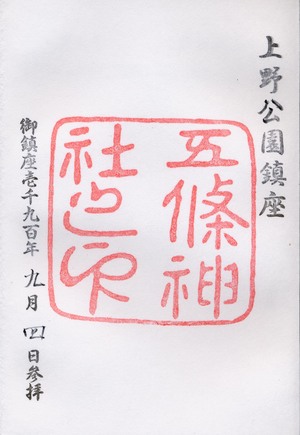 上野公園鎮座
五條神
社之印
御鎮座壱千九百年 九月 四日参拝